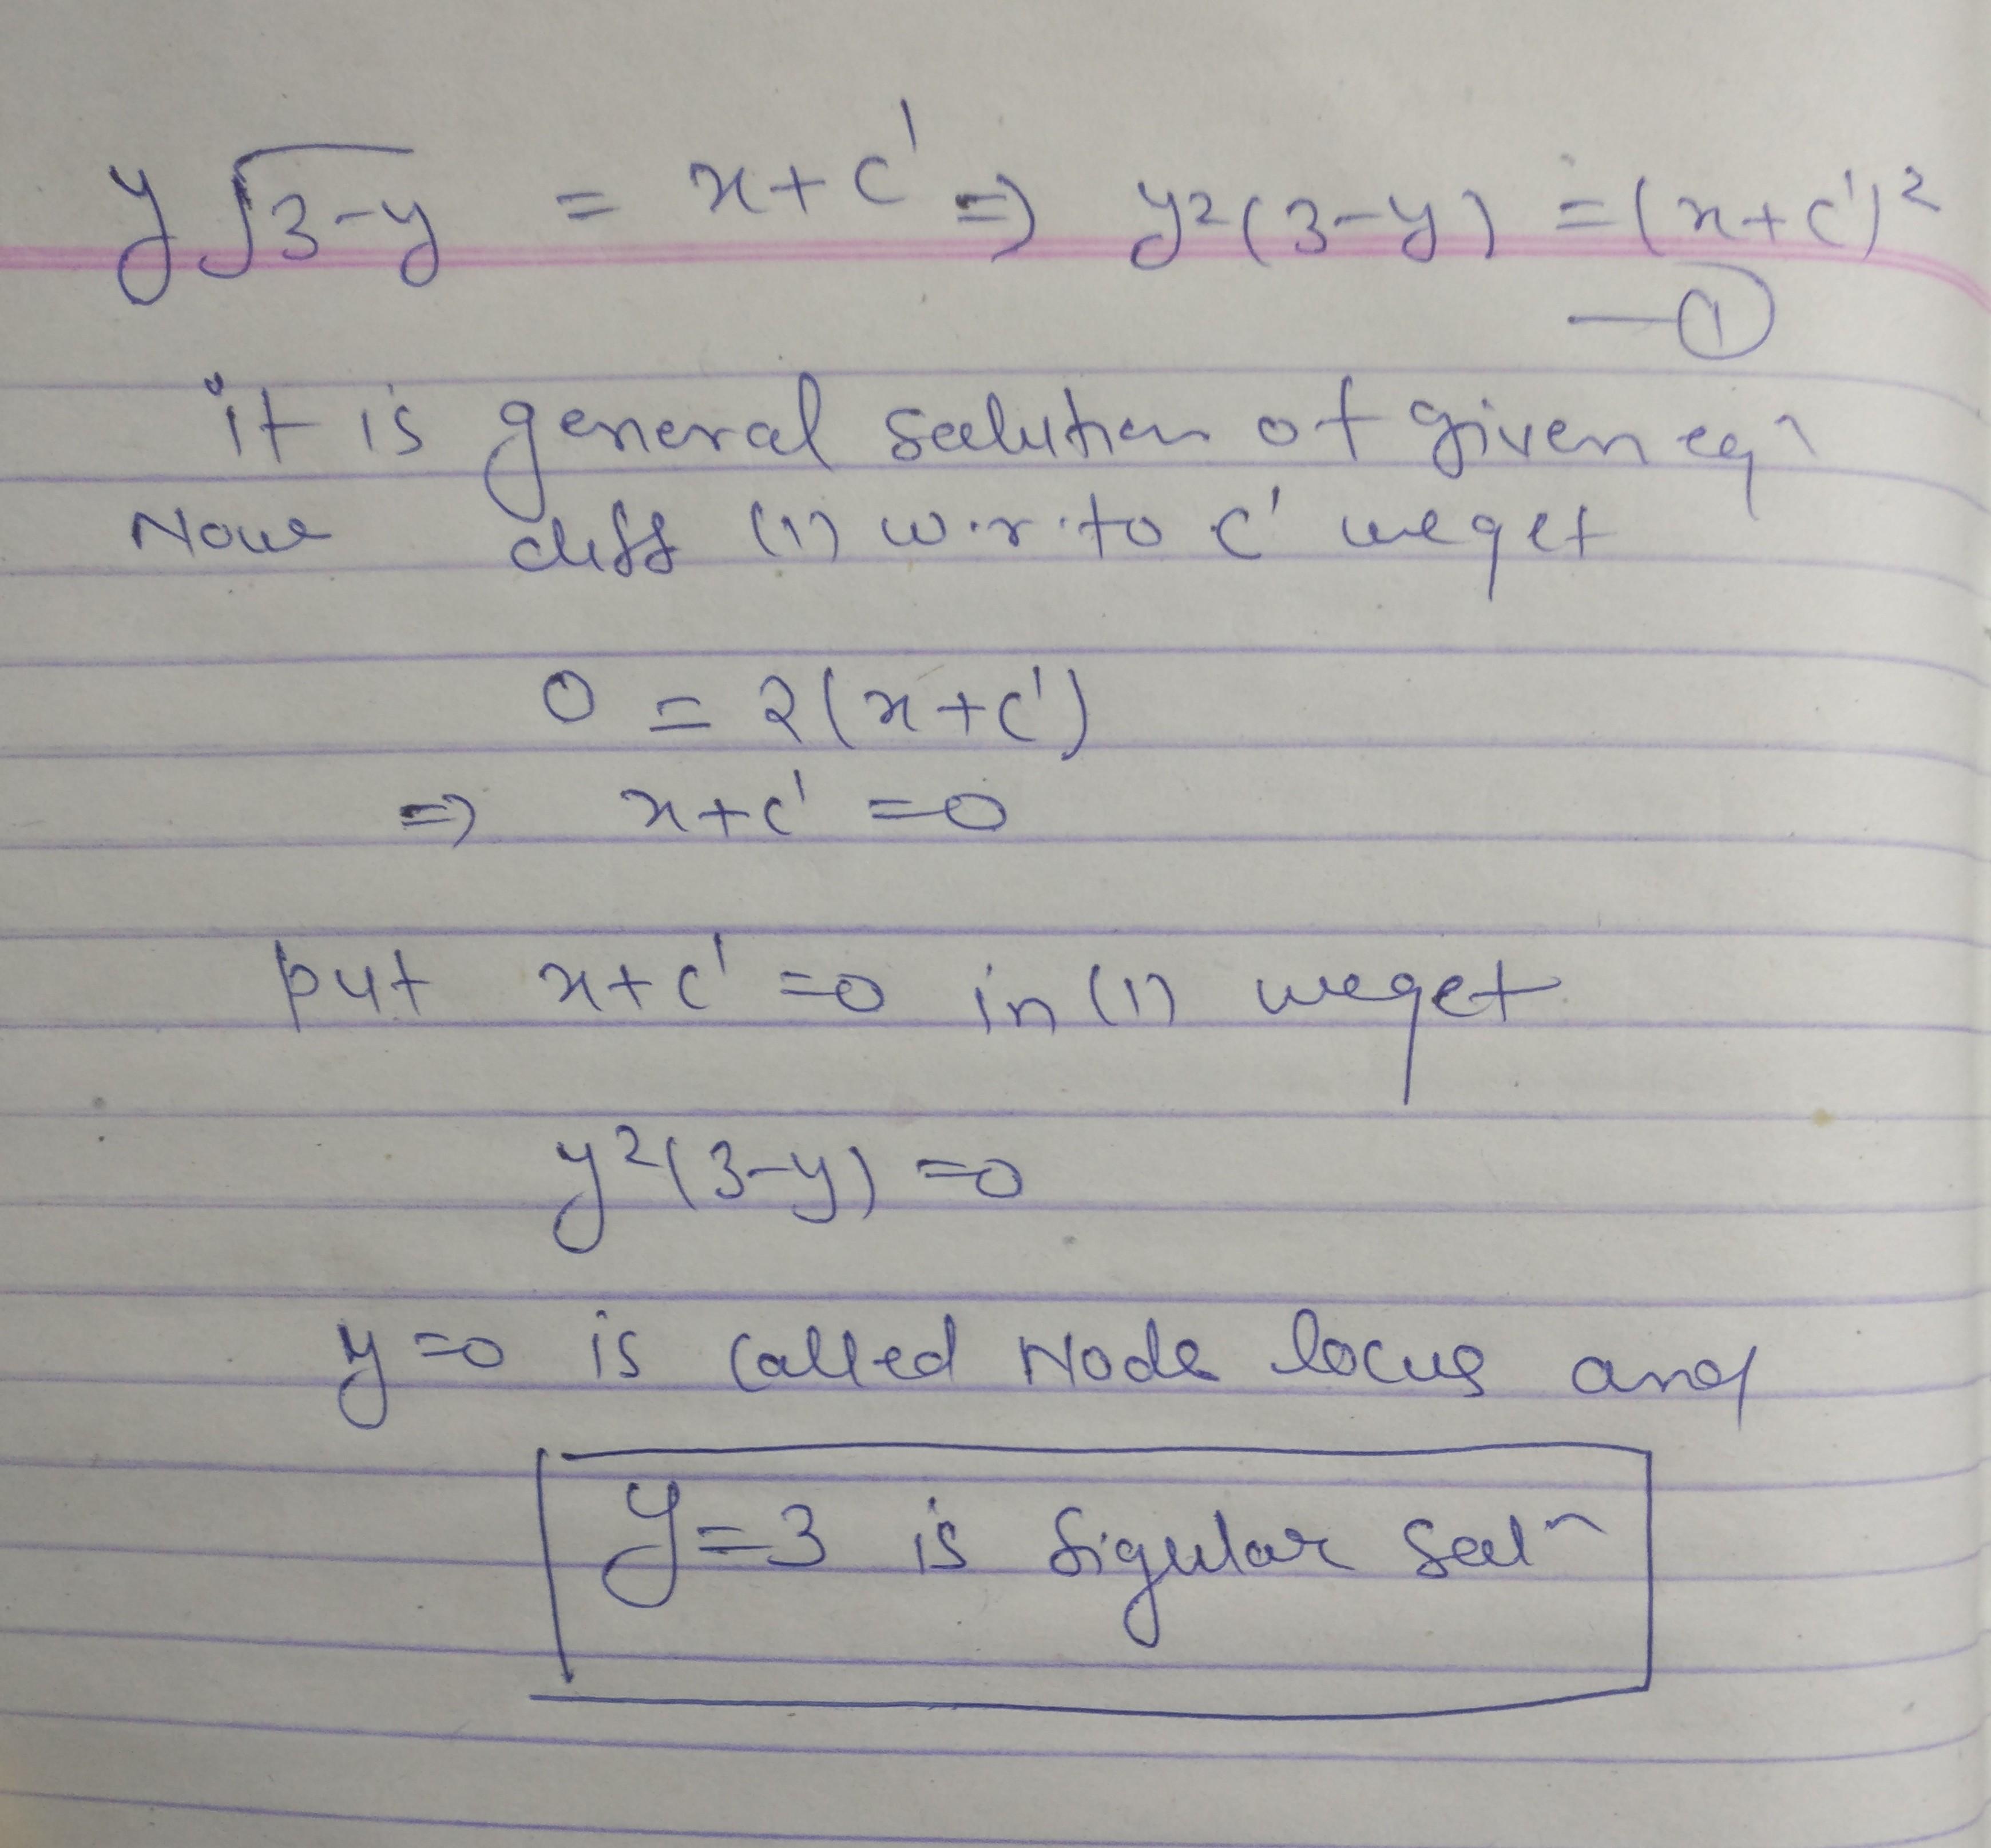 y√3-y = x+c' ⇒ y²(3-y) = (x+c')²
—①
it is general solution of given eqn
Now diff (1) w.r.to c' we get
0 = 2(x+c')
⇒ x+c' =0
put x+c' =0 in (1) we get
y²(3-y) =0
y=0 is called Node locus and
y=3 is sigular soln